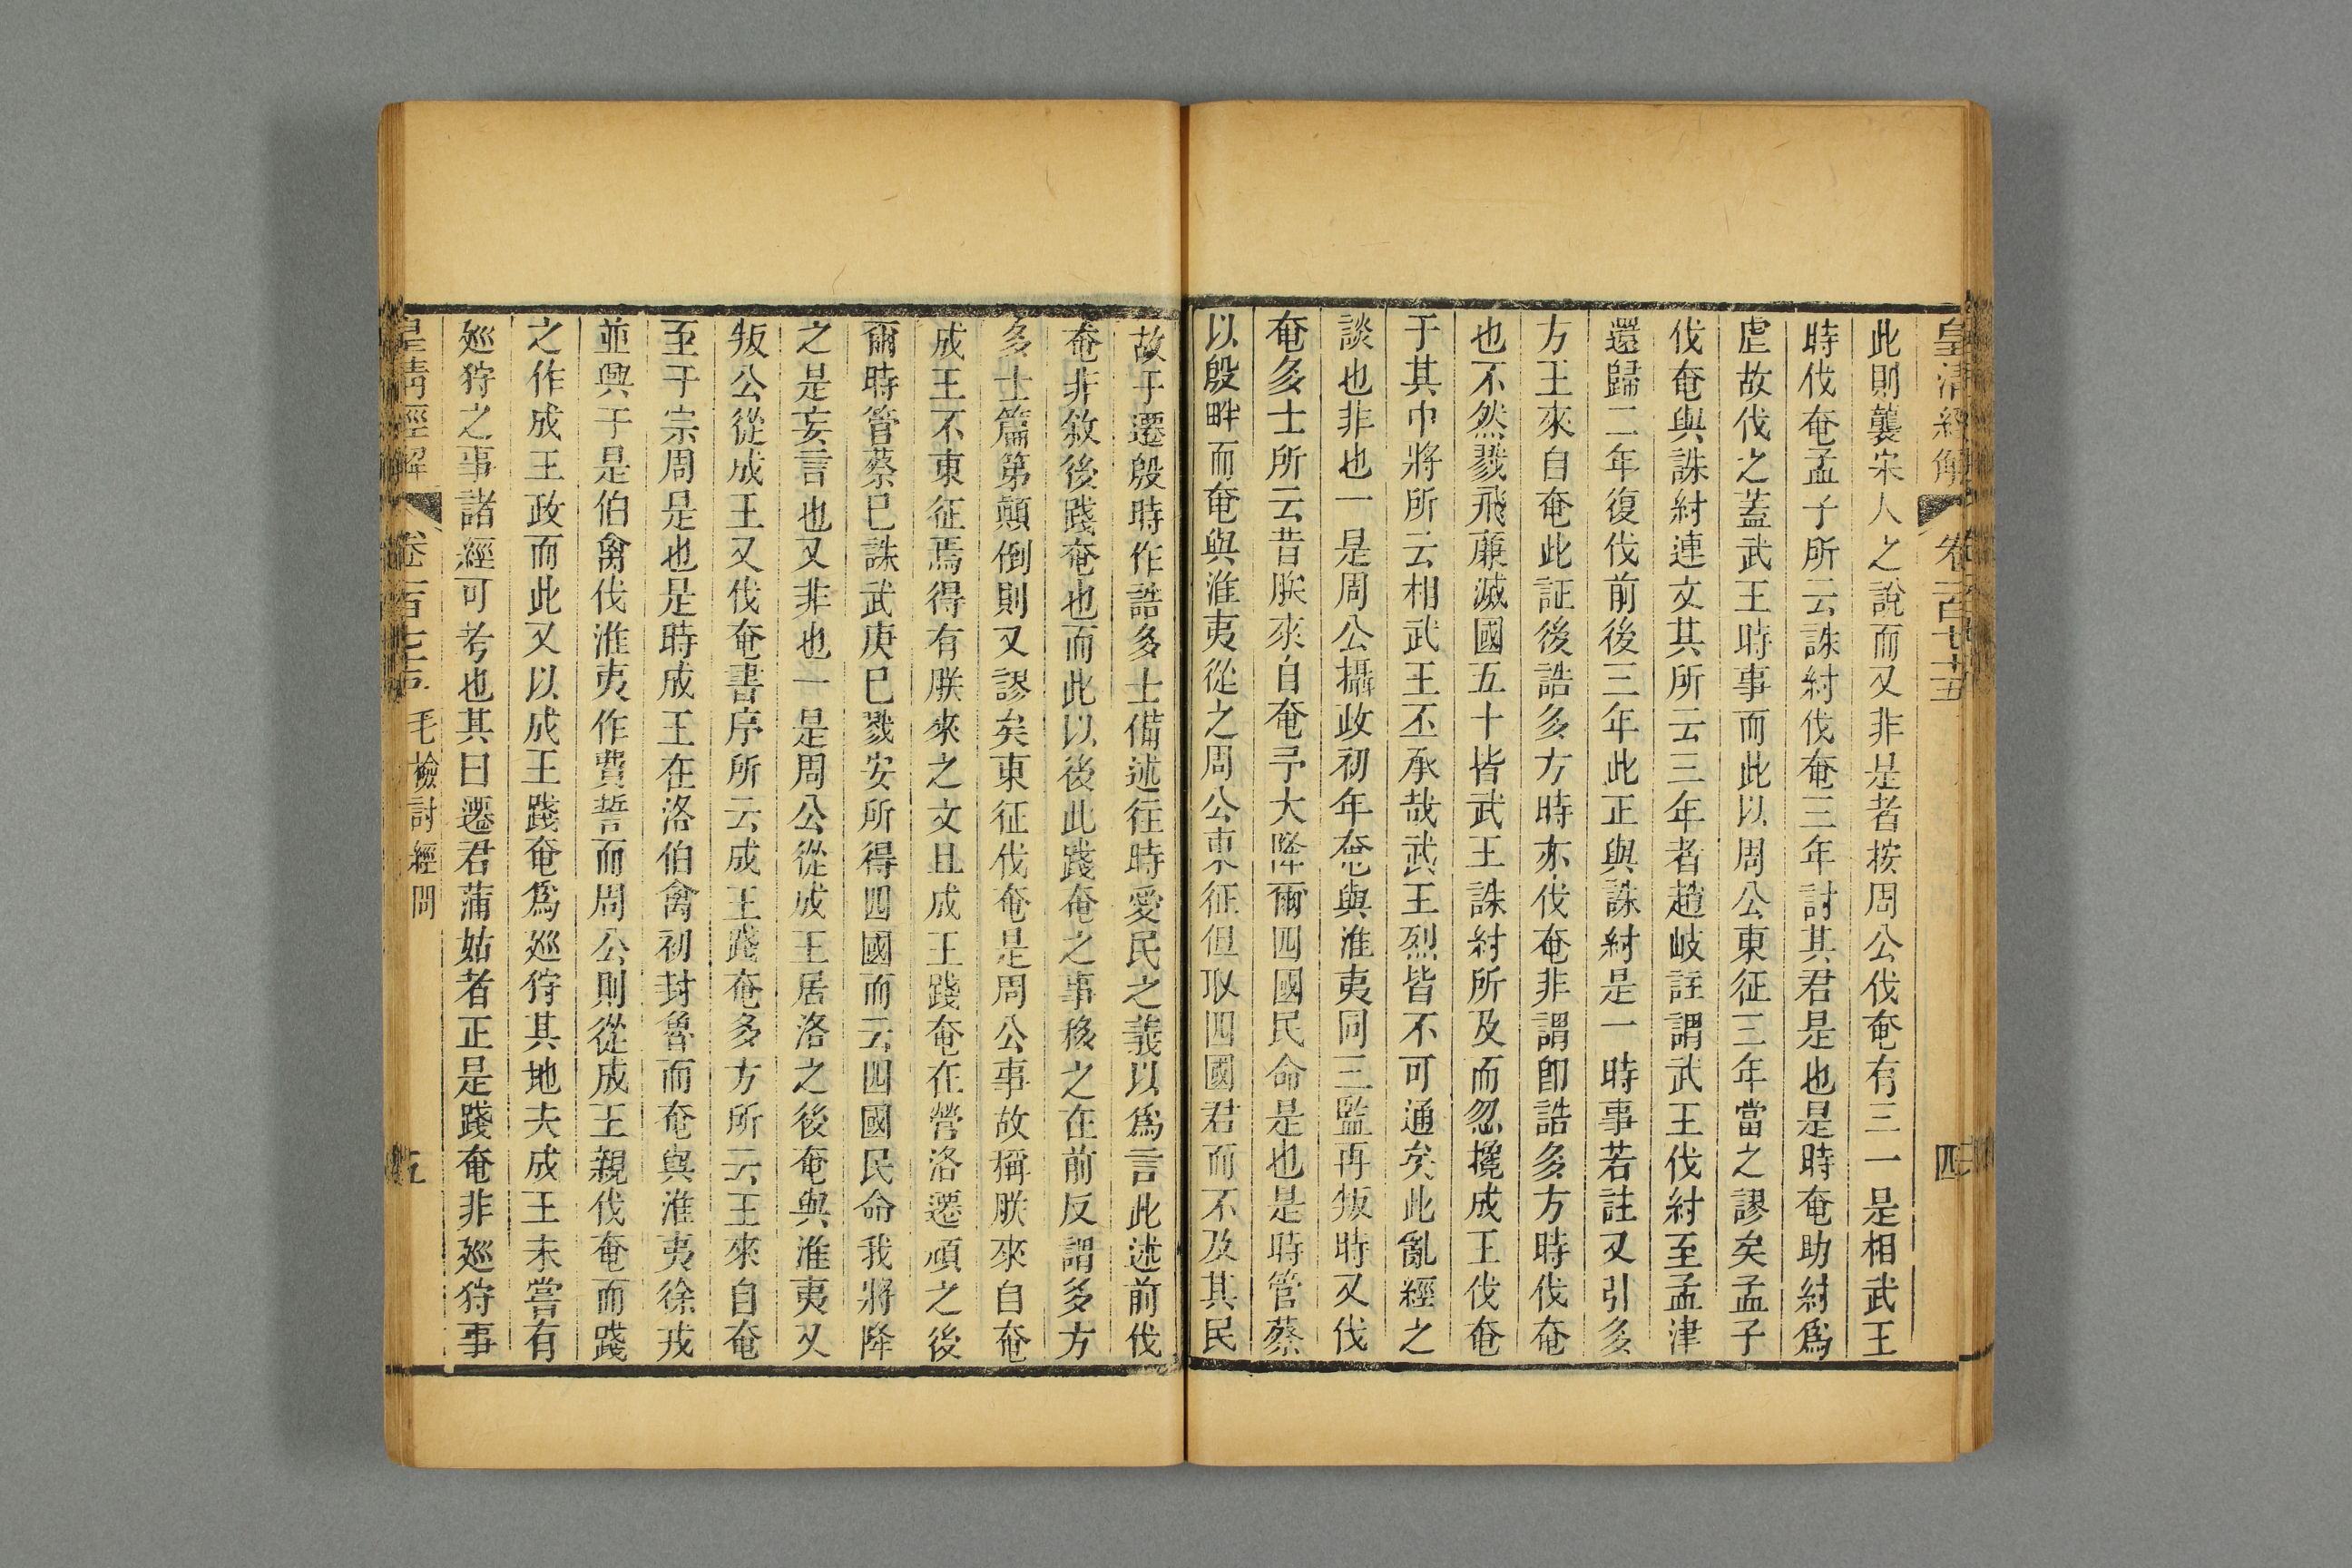 皇清經解 卷一百七十五 四
此則襲宋人之說而又非是者按周公伐奄有三一是相武王
時伐奄孟子所云誅紂伐奄三年討其君是也是時奄助紂爲
虐故伐之蓋武王時事而此以周公東征三年當之謬矣孟子
伐奄與誅紂連文其所云三年者趙岐註謂武王伐紂至孟津
還歸二年復伐前後三年此正與誅紂是一時事若註又引多
方王來自奄此証後誥多方時亦伐奄非謂卽誥多方時伐奄
也不然戮飛廉滅國五十皆武王誅紂所及而忽攙成王伐奄
于其中將所云相武王丕承哉武王烈皆不可通矣此亂經之
談也非也一是周公攝政初年奄與淮夷同三監再叛時又伐
奄多士所云昔朕來自奄予大降爾四國民命是也是時管蔡
以殷畔而奄與淮夷從之周公東征但取四國君而不及其民
故于遷殷時作誥多士備述往時愛民之義以爲言此述前伐
奄非敘後踐奄也而此以後此踐奄之事移之在前反謂多方
多士篇第顛倒則又謬矣東征伐奄是周公事故稱朕來自奄
成王不東征焉得有朕來之文且成王踐奄在營洛遷頑之後
爾時管蔡已誅武庚已戮安所得四國而云四國民命我將降
之是妄言也又非也一是周公從成王居洛之後奄與淮夷又
叛公從成王又伐奄書序所云成王踐奄多方所云王來自奄
至于宗周是也是時成王在洛伯禽初封魯而奄與淮夷徐戎
並興于是伯禽伐淮夷作費誓而周公則從成王親伐奄而踐
之作成王政而此又以成王踐奄爲廵狩其地夫成王未嘗有
廵狩之事諸經可考也其曰遷君蒲姑者正是踐奄非廵狩事
皇清經解 卷一百七十五 毛檢討經問 五